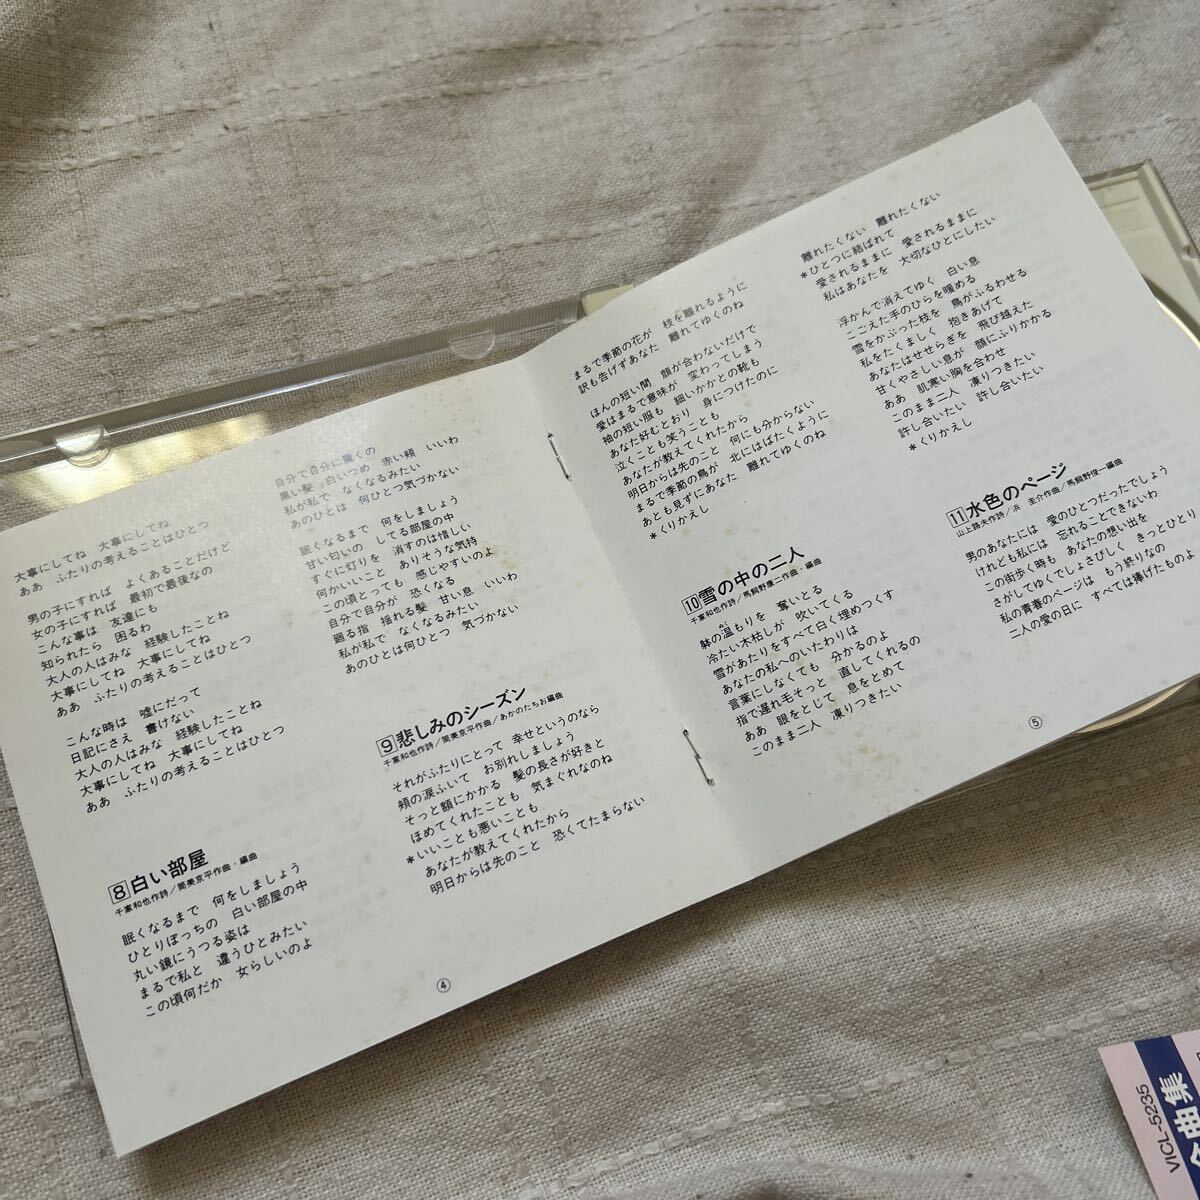 大事にしてね　大事にしてね
ああ　ふたりの考えることはひとつ
男の子にすれば　よくあることだけど
女の子にすれば　最初で最後なの
こんな事は　友達にも
知られたら　困るわ
大人の人はみな　経験したことね
大事にしてね　大事にしてね
ああ　ふたりの考えることはひとつ
こんな時は　嘘にだって
日記にさえ　書けない
大人の人はみな　経験したことね
大事にしてね　大事にしてね
ああ　ふたりの考えることはひとつ
8 白い部屋
千家和也作詩／筒美京平作曲・編曲
眠くなるまで　何をしましょう
ひとりぼっちの　白い部屋の中
丸い鏡にうつる姿は
まるで私と　違うひとみたい
この頃何だか　女らしいのよ
自分で自分に驚くの
黒い髪　白いつめ　赤い頬　いいわ
私が私で　なくなるみたい
あのひとは　何ひとつ気づかない
眠くなるまで　何をしましょう
甘い匂いの　してる部屋の中
すぐに灯りを　消すのは惜しい
何かいいこと　ありそうな気持
この頃とっても　感じやすいのよ
自分で自分が　恐くなる
廻る指　揺れる髪　甘い息　いいわ
私が私で　なくなるみたい
あのひとは何ひとつ　気づかない
9 悲しみのシーズン
千家和也作詩／筒美京平作曲／あかのたちお編曲
それがふたりにとって　幸せというのなら
頬の涙ふいて　お別れしましょう
そっと額にかかる　髪の長さが好きと
ほめてくれたことも　気まぐれなのね
＊いいことも悪いことも
あなたが教えてくれたから
明日からは先のこと　恐くてたまらない
④
まるで季節の花が　枝を離れるように
訳も告げずあなた　離れてゆくのね
ほんの短い間　顔が合わないだけで
愛はまるで意味が　変わってしまう
袖の短い服も　細いかかとの靴も
あなた好むとおり　身につけたのに
泣くことも笑うことも
あなたが教えてくれたから
明日からは先のこと　何にも分からない
まるで季節の鳥が　北にはばたくように
あとも見ずにあなた　離れてゆくのね
＊くりかえし
10 雪の中の二人
千家和也作詩／馬飼野康二作曲・編曲
躰の温もりを　奪いとる
冷たい木枯しが　吹いてくる
雪があたりをすべて白く埋めつくす
あなたの私へのいたわりは
言葉にしなくても　分かるのよ
指で遅れ毛そっと　直してくれるの
ああ　眼をとじて　息をとめて
このまま二人　凍りつきたい
離れたくない　離れたくない
＊ひとつに結ばれて
愛されるままに　愛されるままに
私はあなたを　大切なひとにしたい
浮かんで消えてゆく　白い息
こごえた手のひらを暖める
雪をかぶった枝を　鳥がふるわせる
私をたくましく　抱きあげて
あなたはせせらぎを　飛び越えた
甘くやさしい息が　顔にふりかかる
ああ　肌寒い胸を合わせ
このまま二人　凍りつきたい
許し合いたい　許し合いたい
＊くりかえし
11 水色のページ
山上路夫作詩／浜　圭介作曲／馬飼野俊一編曲
男のあなたには　愛のひとつだったでしょう
けれども私には　忘れることできないわ
この街歩く時も　あなたの想い出を
さがしてゆくでしょさびしく　きっとひとり
私の青春のページは　もう終りなの
二人の愛の日に　すべては捧げたものよ
⑤
VICL-5235
全曲集